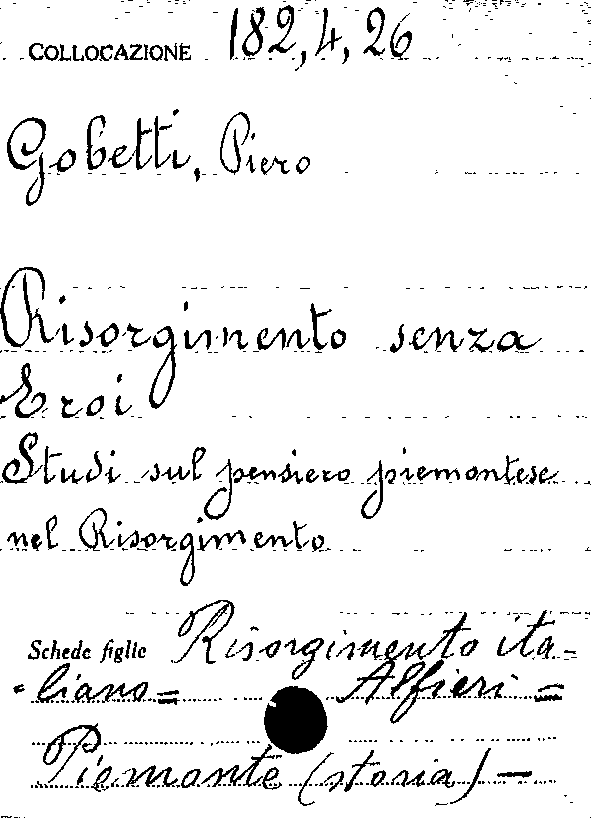 COLLOCAZIONE 182,4,26
Gobetti, Piero
Risorgimento senza
Eroi
Studi sul pensiero piemontese
nel Risorgimento
Schede figlie Risorgimento ita-
-liano= Alfieri =
Piemonte (storia) -